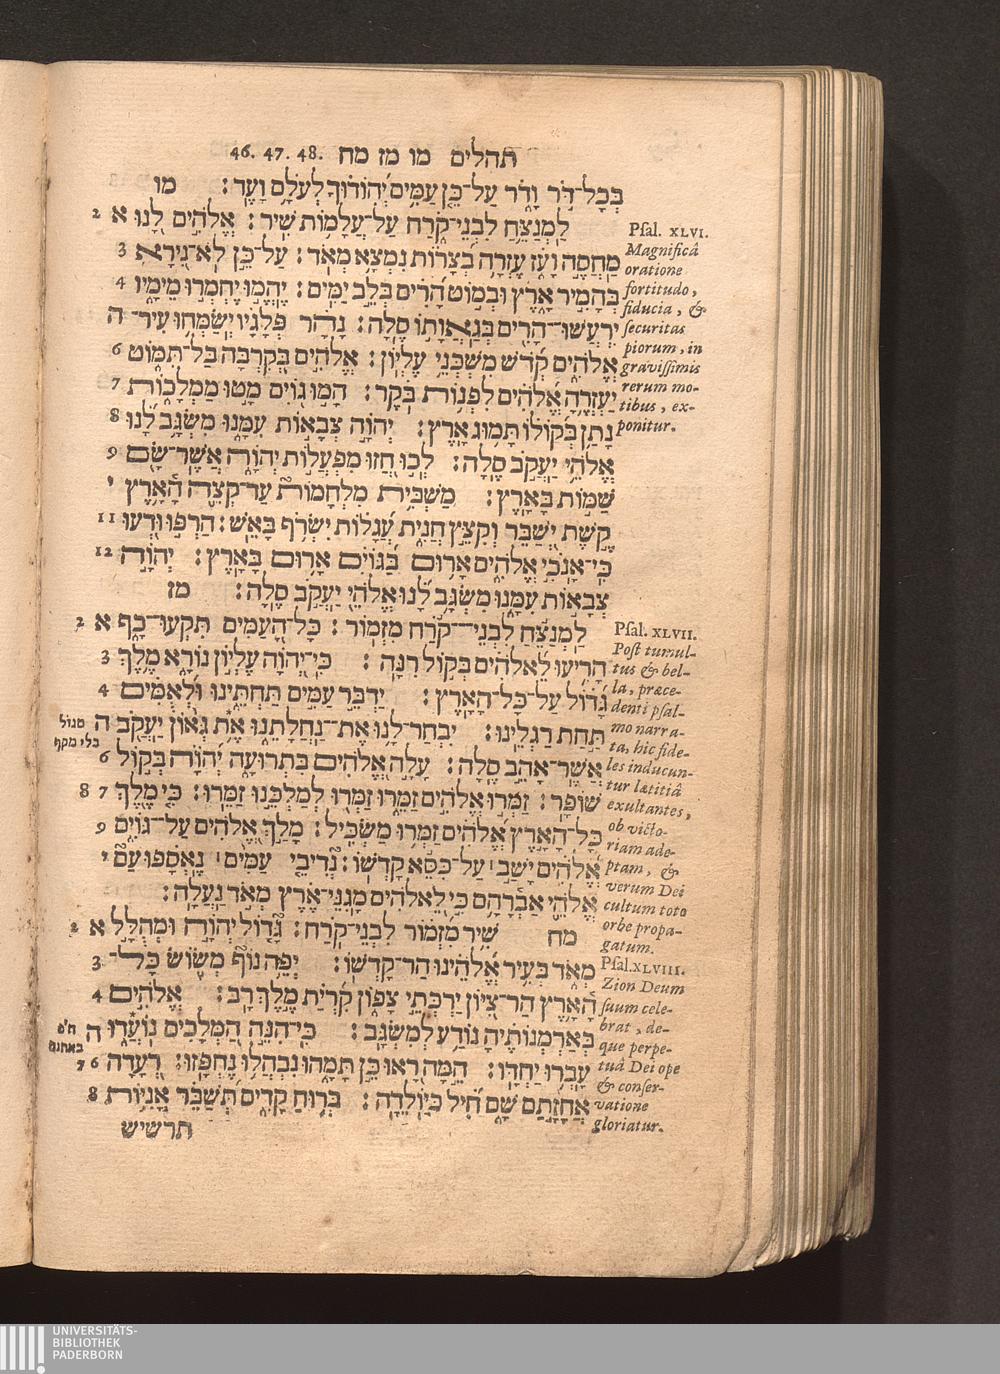 תהלים מו מז מח 46. 47. 48.
בְּכָל־דֹּר וָדֹר עַל־כֵּן עַמִּים יְהוֹדוּךָ לְעֹלָם וָעֶד׃ מו
לַמְנַצֵּחַ לִבְנֵי־קֹרַח עַל־עֲלָמוֹת שִׁיר׃ אֱלֹהִים לָנוּ א 2
מַחֲסֶה וָעֹז עֶזְרָה בְצָרוֹת נִמְצָא מְאֹד׃ עַל־כֵּן לֹא־נִירָא 3
בְּהָמִיר אָרֶץ וּבְמוֹט הָרִים בְּלֵב יַמִּים׃ יֶהֱמוּ יֶחְמְרוּ מֵימָיו 4
יִרְעֲשׁוּ־הָרִים בְּגַאֲוָתוֹ סֶלָה׃ נָהָר פְּלָגָיו יְשַׂמְּחוּ עִיר־ ה
אֱלֹהִים קְדֹשׁ מִשְׁכְּנֵי עֶלְיוֹן׃ אֱלֹהִים בְּקִרְבָּהּ בַּל־תִּמּוֹט 6
יַעְזְרֶהָ אֱלֹהִים לִפְנוֹת בֹּקֶר׃ הָמוּ גוֹיִם מָטוּ מַמְלָכוֹת 7
נָתַן בְּקוֹלוֹ תָּמוּג אָרֶץ׃ יְהוָה צְבָאוֹת עִמָּנוּ מִשְׂגָּב־לָנוּ 8
אֱלֹהֵי יַעֲקֹב סֶלָה׃ לְכוּ חֲזוּ מִפְעֲלוֹת יְהוָה אֲשֶׁר־שָׂם 9
שַׁמּוֹת בָּאָרֶץ׃ מַשְׁבִּית מִלְחָמוֹת עַד־קְצֵה הָאָרֶץ י
קֶשֶׁת יְשַׁבֵּר וְקִצֵּץ חֲנִית עֲגָלוֹת יִשְׂרֹף בָּאֵשׁ׃ הַרְפּוּ וּדְעוּ 11
כִּי־אָנֹכִי אֱלֹהִים אָרוּם בַּגּוֹיִם אָרוּם בָּאָרֶץ׃ יְהוָה 12
צְבָאוֹת עִמָּנוּ מִשְׂגָּב־לָנוּ אֱלֹהֵי יַעֲקֹב סֶלָה׃ מז
לַמְנַצֵּחַ לִבְנֵי־קֹרַח מִזְמוֹר׃ כָּל־הָעַמִּים תִּקְעוּ־כָף א 2
הָרִיעוּ לֵאלֹהִים בְּקוֹל רִנָּה׃ כִּי־יְהוָה עֶלְיוֹן נוֹרָא מֶלֶךְ 3
גָּדוֹל עַל־כָּל־הָאָרֶץ׃ יַדְבֵּר עַמִּים תַּחְתֵּינוּ וּלְאֻמִּים 4
תַּחַת רַגְלֵינוּ׃ יִבְחַר־לָנוּ אֶת־נַחֲלָתֵנוּ אֶת גְּאוֹן יַעֲקֹב ה
אֲשֶׁר־אָהֵב סֶלָה׃ עָלָה אֱלֹהִים בִּתְרוּעָה יְהוָה בְּקוֹל 6
שׁוֹפָר׃ זַמְּרוּ אֱלֹהִים זַמֵּרוּ זַמְּרוּ לְמַלְכֵּנוּ זַמֵּרוּ׃ כִּי מֶלֶךְ 7 8
כָּל־הָאָרֶץ אֱלֹהִים זַמְּרוּ מַשְׂכִּיל׃ מָלַךְ אֱלֹהִים עַל־גּוֹיִם 9
אֱלֹהִים יָשַׁב׀ עַל־כִּסֵּא קָדְשׁוֹ׃ נְדִיבֵי עַמִּים׀ נֶאֱסָפוּ עַם י
אֱלֹהֵי אַבְרָהָם כִּי לֵאלֹהִים מָגִנֵּי־אֶרֶץ מְאֹד נַעֲלָה׃
מח שִׁיר מִזְמוֹר לִבְנֵי־קֹרַח׃ גָּדוֹל יְהוָה וּמְהֻלָּל א 2
מְאֹד בְּעִיר אֱלֹהֵינוּ הַר־קָדְשׁוֹ׃ יְפֵה נוֹף מְשׂוֹשׂ כָּל־ 3
הָאָרֶץ הַר־צִיּוֹן יַרְכְּתֵי צָפוֹן קִרְיַת מֶלֶךְ רָב׃ אֱלֹהִים 4
בְּאַרְמְנוֹתֶיהָ נוֹדַע לְמִשְׂגָּב׃ כִּי־הִנֵּה הַמְּלָכִים נוֹעֲדוּ ה
עָבְרוּ יַחְדָּו׃ הֵמָּה רָאוּ כֵּן תָּמָהוּ נִבְהֲלוּ נֶחְפָּזוּ׃ רְעָדָה 6 7
אֲחָזָתַם שָׁם חִיל כַּיּוֹלֵדָה׃ בְּרוּחַ קָדִים תְּשַׁבֵּר אֳנִיּוֹת 8
תרשיש
Psal. XLVI.
Magnificâ
oratione
fortitudo,
fiducia, &
securitas
piorum, in
gravissimis
rerum mo-
tibus, ex-
ponitur.
Psal. XLVII.
Post tumul-
tus & bel-
la, præce-
denti psal-
mo narra-
ta, hic fide-
les inducun-
tur lætitiâ
exultantes,
ob victo-
riam ade-
ptam, &
verum Dei
cultum toto
orbe propa-
gatum.
Psal. XLVIII.
Zion Deum
suum cele-
brat, de-
que perpe-
tuâ Dei ope
& conser-
vatione
gloriatur.
סגול
בלי מקף
באתנח
UNIVERSITÄTS-
BIBLIOTHEK
PADERBORN